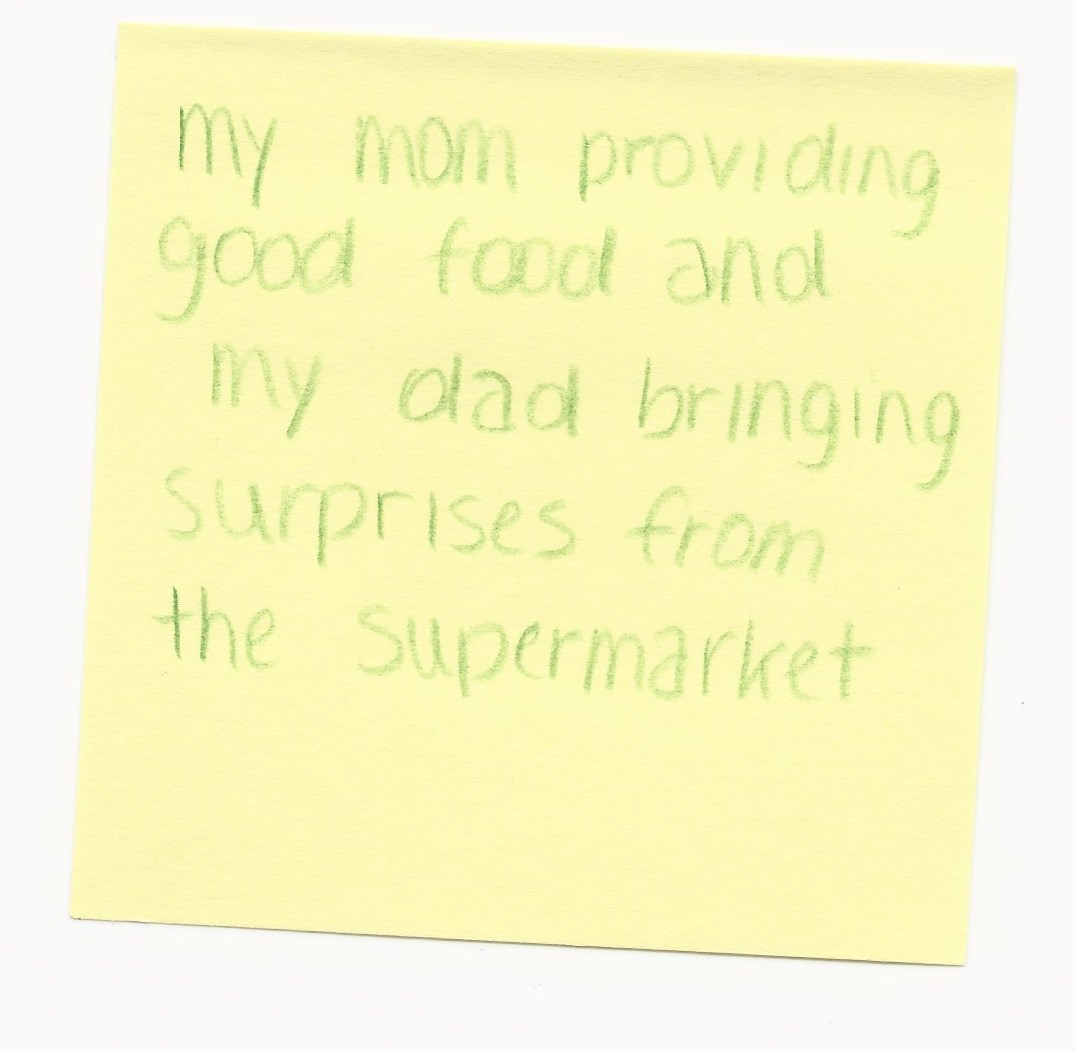 my mom providing
good food and
my dad bringing
surprises from
the supermarket